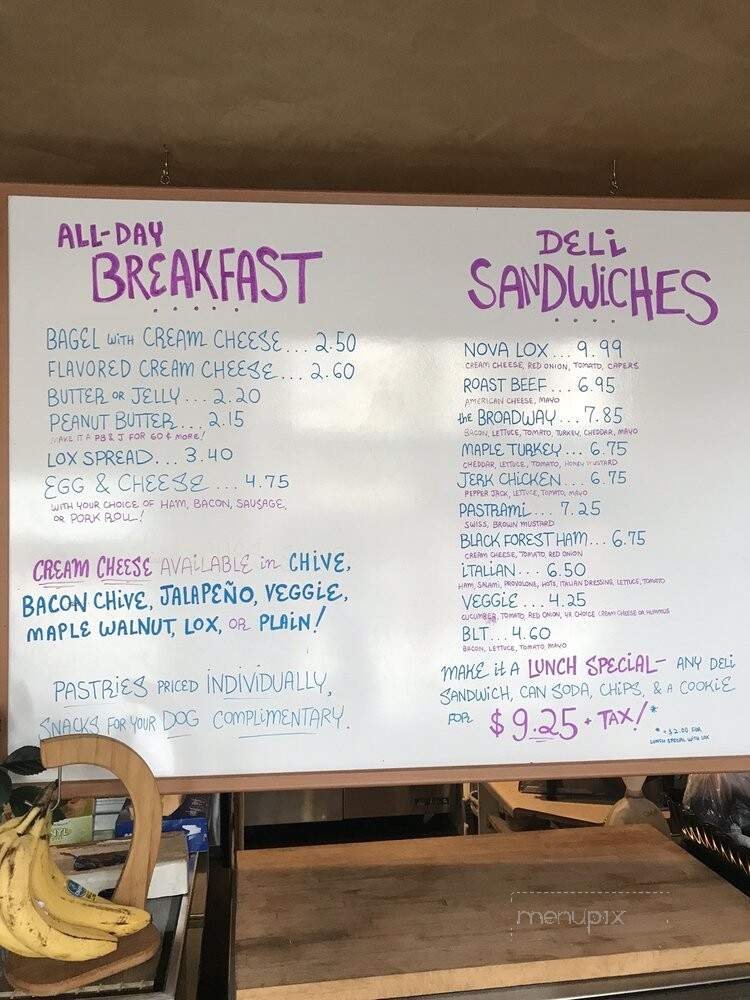 ALL-DAY
BREAKFAST
BAGEL WITH CREAM CHEESE... 2.50
FLAVORED CREAM CHEESE... 2.60
BUTTER OR JELLY... 2.20
PEANUT BUTTER... 2.15
MAKE IT A PB & J FOR 60¢ MORE!
LOX SPREAD... 3.40
EGG & CHEESE ... 4.75
WITH YOUR CHOICE OF HAM, BACON, SAUSAGE,
OR PORK ROLL!
CREAM CHEESE AVAILABLE in CHIVE,
BACON CHIVE, JALAPEÑO, VEGGIE,
MAPLE WALNUT, LOX, OR PLAIN!
PASTRIES PRICED INDIVIDUALLY,
SNACKS FOR YOUR DOG COMPLIMENTARY.
DELI
SANDWICHES
NOVA LOX... 9.99
CREAM CHEESE, RED ONION, TOMATO, CAPERS
ROAST BEEF... 6.95
AMERICAN CHEESE, MAYO
the BROADWAY... 7.85
BACON, LETTUCE, TOMATO, TURKEY, CHEDDAR, MAYO
MAPLE TURKEY... 6.75
CHEDDAR, LETTUCE, TOMATO, HONEY MUSTARD
JERK CHICKEN... 6.75
PEPPER JACK, LETTUCE, TOMATO, MAYO
PASTRAMI... 7.25
SWISS, BROWN MUSTARD
BLACK FOREST HAM... 6.75
CREAM CHEESE, TOMATO, RED ONION
ITALIAN... 6.50
HAM, SALAMI, PROVOLONE, HOTS, ITALIAN DRESSING, LETTUCE, TOMATO
VEGGIE... 4.25
CUCUMBER, TOMATO, RED ONION, UR CHOICE CREAM CHEESE OR HUMMUS
BLT... 4.60
BACON, LETTUCE, TOMATO, MAYO
MAKE IT A LUNCH SPECIAL- ANY DELI
SANDWICH, CAN SODA, CHIPS, & A COOKIE
FOR $9.25 + TAX!*
* +$2.00 FOR
LUNCH SPECIAL WITH LOX
menupix